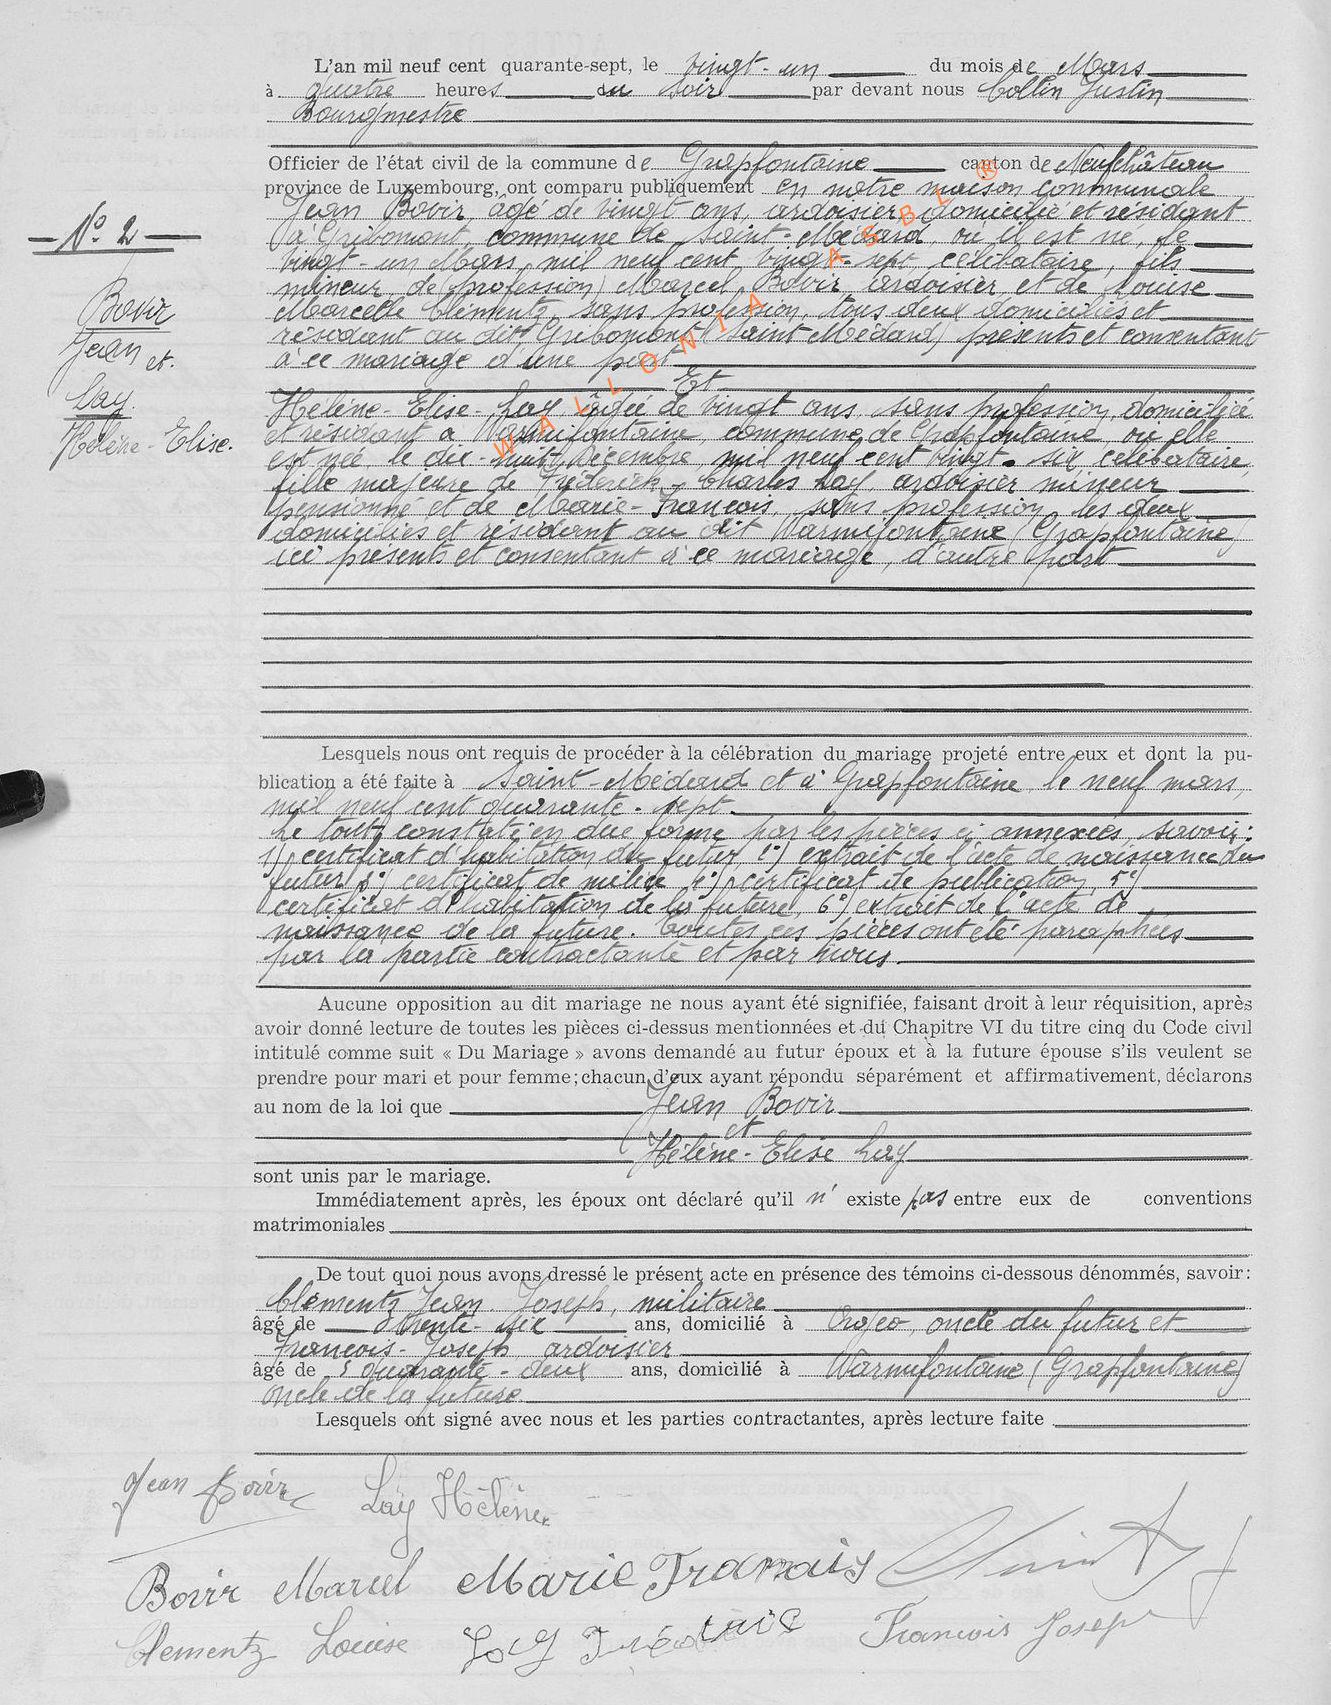 L'an mil neuf cent quarante-sept, le vingt-un du mois de Mars
à quatre heures du soir par devant nous Collin Justin
Bourgmestre
Officier de l'état civil de la commune de Grapfontaine canton de Neufchâteau
province de Luxembourg, ont comparu publiquement en notre maison communale
Jean Bovir, âgé de vingt ans, ardoisier, domicilié et résidant
N° 2
à Gribomont, commune de Saint-Médard, où il est né, le
vingt-un Mars mil neuf cent vingt-sept, célibataire, fils
mineur de (profession) Marcel Bovir ardoisier et de Louise
Marcelle Clémentz, sans profession, tous deux domiciliés et
résidant au dit Gribomont (Saint Médard) présents et consentant
à ce mariage d'une part
Bovir
Jean et.
Lay
Hélène-Elise.
Et
Hélène-Elise-Lay, âgée de vingt ans, sans profession, domiciliée
et résidant à Warmifontaine, commune de Grapfontaine, où elle
est née, le dix-huit Décembre mil neuf cent vingt-six, célibataire,
fille majeure de Fréderick-Charles Lay, ardoisier mineur
pensionné et de Marie-François, sans profession, les deux
domiciliés et résidant au dit Warmifontaine (Grapfontaine)
ici présents et consentant à ce mariage, d'autre part
WALLONIA ASBL ®
Lesquels nous ont requis de procéder à la célébration du mariage projeté entre eux et dont la pu-
blication a été faite à Saint-Médard et à Grapfontaine, le neuf mars,
mil neuf cent quarante-sept.
Le tout constaté en due forme par les pièces ci annexées savoir:
1°) certificat d'habitation du futur, 2°) extrait de l'acte de naissance du
futur, 3°) certificat de milice, 4°) certificat de publication, 5°)
certificat d'habitation de la future, 6°) extrait de l'acte de
naissance de la future. Toutes ces pièces ont été paraphées
par la partie contractante et par nous.
Aucune opposition au dit mariage ne nous ayant été signifiée, faisant droit à leur réquisition, après
avoir donné lecture de toutes les pièces ci-dessus mentionnées et du Chapitre VI du titre cinq du Code civil
intitulé comme suit « Du Mariage » avons demandé au futur époux et à la future épouse s'ils veulent se
prendre pour mari et pour femme; chacun d'eux ayant répondu séparément et affirmativement, déclarons
au nom de la loi que Jean Bovir
et
Hélène-Elise Lay
sont unis par le mariage.
Immédiatement après, les époux ont déclaré qu'il n' existe pas entre eux de conventions
matrimoniales
De tout quoi nous avons dressé le présent acte en présence des témoins ci-dessous dénommés, savoir:
Clementz Jean-Joseph, militaire
âgé de trente-six ans, domicilié à Orgeo, oncle du futur et
François-Joseph, ardoisier
âgé de quarante-deux ans, domicilié à Warmifontaine (Grapfontaine)
oncle de la future
Lesquels ont signé avec nous et les parties contractantes, après lecture faite
Jean Bovir Lay Hélène.
Bovir Marcel Marie Franҫais
Clementz Louise Lay Frédéric François Joseph